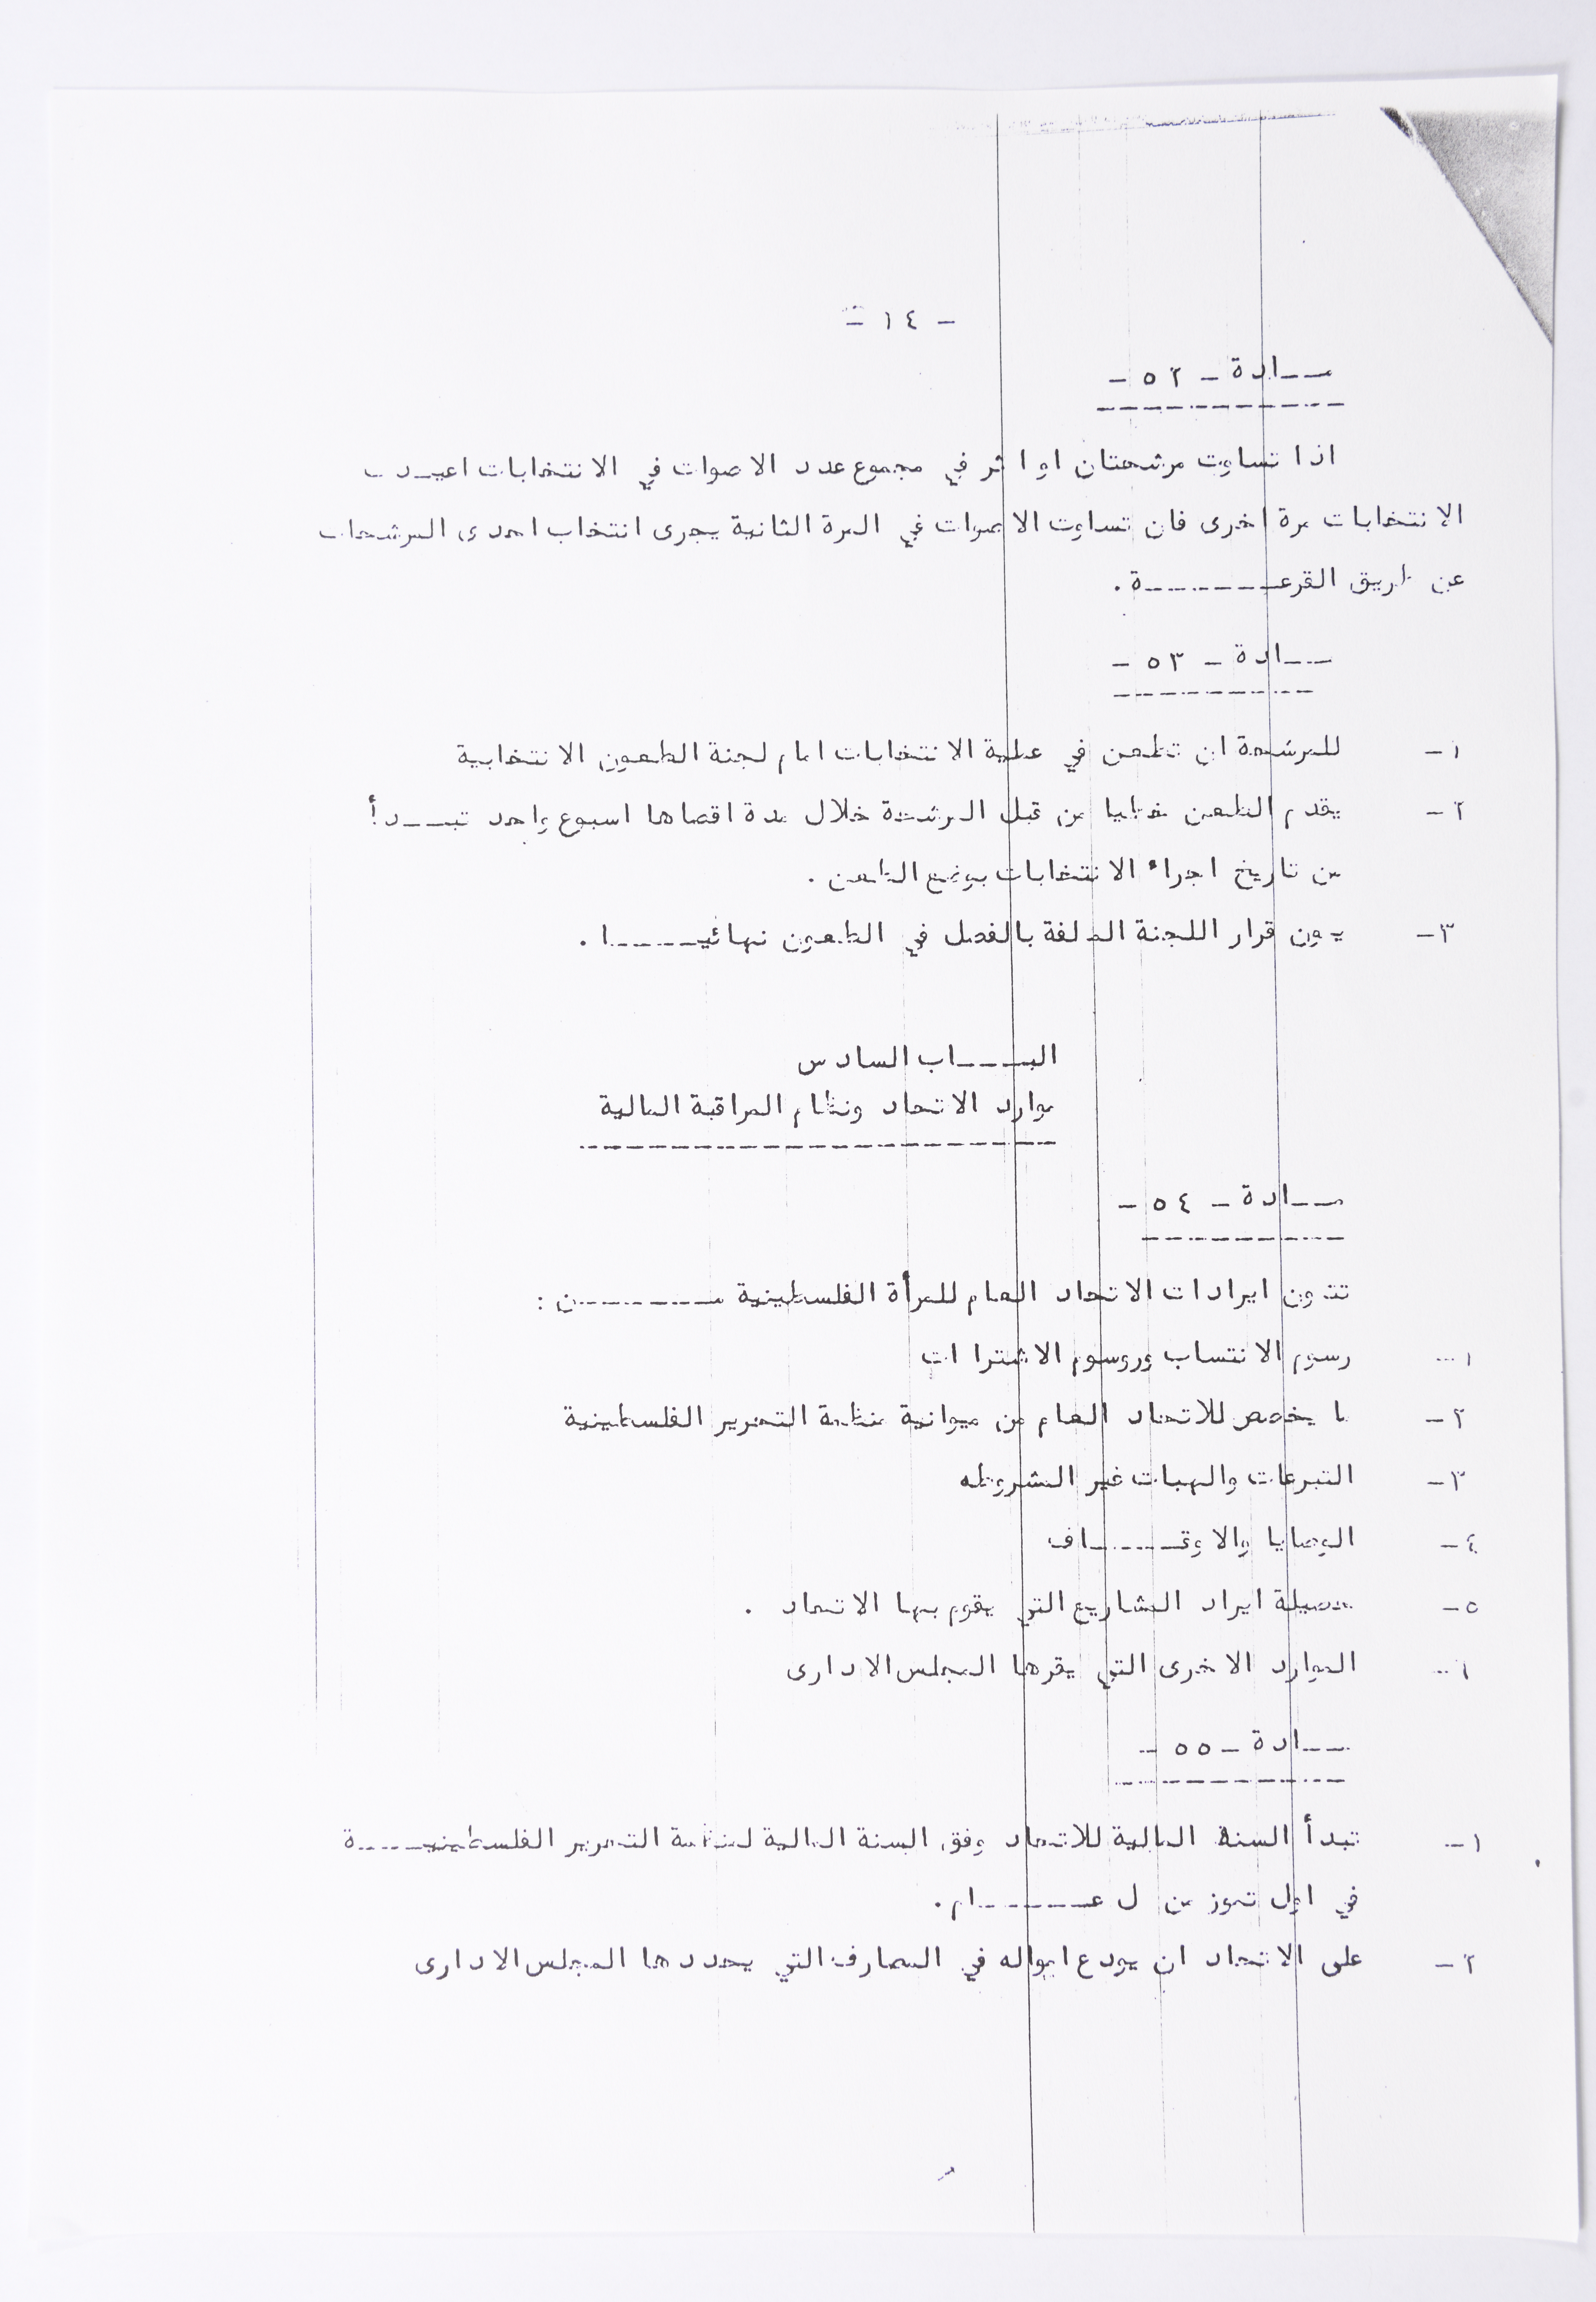 - ١٤ -
مـــادة - ٥٢ -
اذا تساوت مرشحتان او اكثر في مجموع عدد الاصوات في الانتخابات اعيـــدت
الانتخابات مرة اخرى فان تساوت الاصوات في المرة الثانية يجرى انتخاب احدى المرشحات
عن طريق القرعـــــــــة .
مـــادة - ٥٣ -
١- للمرشحة ان تطعن في عملية الانتخابات امام لجنة الطعون الانتخابية
٢- يقدم الطعن خطيا من قبل المرشحة خلال مدة اقصاها اسبوع واحد تبـــدأ
من تاريخ اجراء الانتخابات بموضع الطعن .
٣- يكون قرار اللجنة المكلفة بالفصل في الطعون نهائيـــــــا .
البــــــاب السادس
موارد الاتحاد ونظام المراقبة المالية
مـــادة - ٥٤ -
تتكون ايرادات الاتحاد العام للمرأة الفلسطينية مـــــــــن :
١- رسوم الانتساب ورسوم الاشتراكات
٢- ما يخصص للاتحاد العام من ميزانية منظمة التحرير الفلسطينية
٣- التبرعات والهبات غير المشروطه
٤- الوصايا والاوقـــــــاف
٥- حصيلة ايراد المشاريع التي يقوم بها الاتحاد .
٦- الموارد الاخرى التي يقرها المجلس الادارى
مـــادة - ٥٥ -
١- تبدأ السنة المالية للاتحاد وفق السنة المالية لمنظمة التحرير الفلسطينيـــــة
في اول تموز من كل عـــــــــام .
٢- على الاتحاد ان يودع امواله في المصارف التي يحددها المجلس الادارى